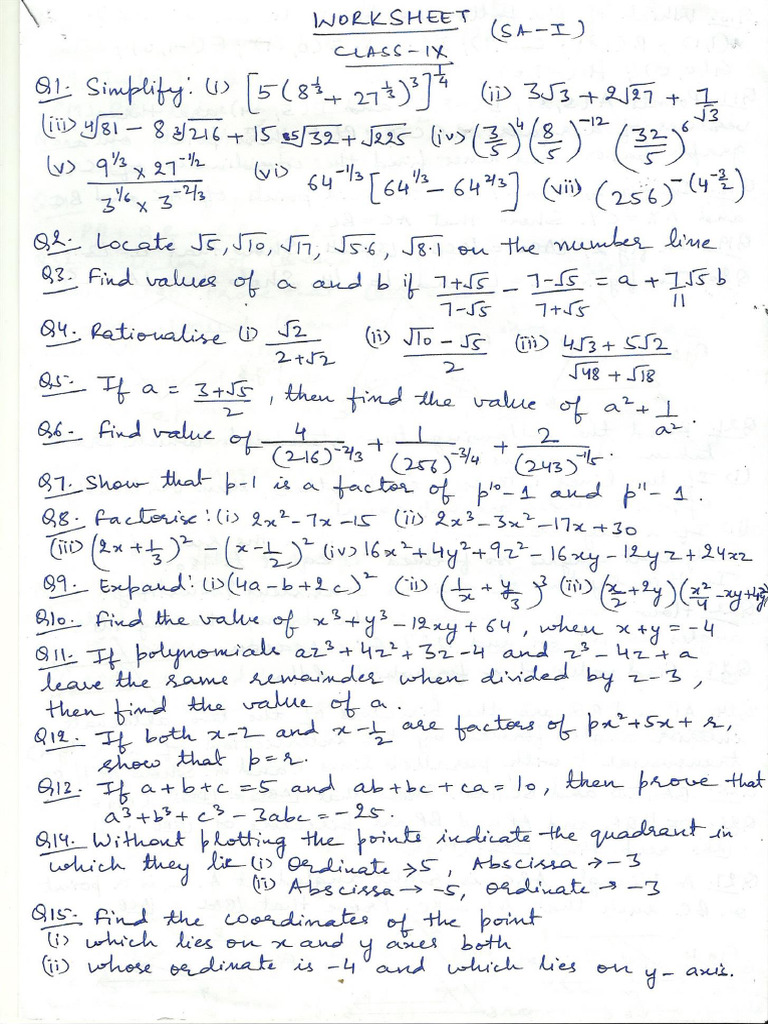 WORKSHEET (SA-I)
CLASS-IX
Q1. Simplify: (i) [5(8^1/3 + 27^1/3)^3]^1/4 (ii) 3√3 + 2√27 + 7/√3
(iii) ⁴√81 - 8 ³√216 + 15 ⁵√32 + √225 (iv) (3/5)^4 (8/5)^-12 (32/5)^6
(v) 9^1/3 × 27^-1/2 / 3^1/6 × 3^-2/3 (vi) 64^-1/3 [64^1/3 - 64^2/3] (vii) (256)^-(4^-3/2)
Q2. Locate √5, √10, √17, √5.6, √8.1 on the number line
Q3. Find values of a and b if 7+√5/7-√5 - 7-√5/7+√5 = a + 7√5 b/11
Q4. Rationalise (i) √2/2+√2 (ii) √10-√5/2 (iii) 4√3+5√2/√48+√18
Q5. If a = 3+√5/2, then find the value of a² + 1/a².
Q6. Find value of 4/(216)^-2/3 + 1/(256)^-3/4 + 2/(243)^-1/5.
Q7. Show that p-1 is a factor of p^10-1 and p^11-1.
Q8. Factorise: (i) 2x²-7x-15 (ii) 2x³-3x²-17x+30
(iii) (2x+1/3)² - (x-1/2)² (iv) 16x²+4y²+9z²-16xy-12yz+24xz
Q9. Expand: (i) (4a-b+2c)² (ii) (1/x + y/3)³ (iii) (x/2+2y)(x²/4-xy+4y²)
Q10. Find the value of x³+y³-12xy+64, when x+y=-4
Q11. If polynomials az³+4z²+3z-4 and z³-4z+a
leave the same remainder when divided by z-3,
then find the value of a.
Q12. If both x-2 and x-1/2 are factors of px²+5x+r,
show that p=r.
Q13. If a+b+c=5 and ab+bc+ca=10, then prove that
a³+b³+c³-3abc=-25.
Q14. Without plotting the points indicate the quadrant in
which they lie (i) Ordinate → 5, Abscissa → -3
(ii) Abscissa → -5, Ordinate → -3
Q15. Find the coordinates of the point
(i) which lies on x and y axes both
(ii) whose ordinate is -4 and which lies on y-axis.